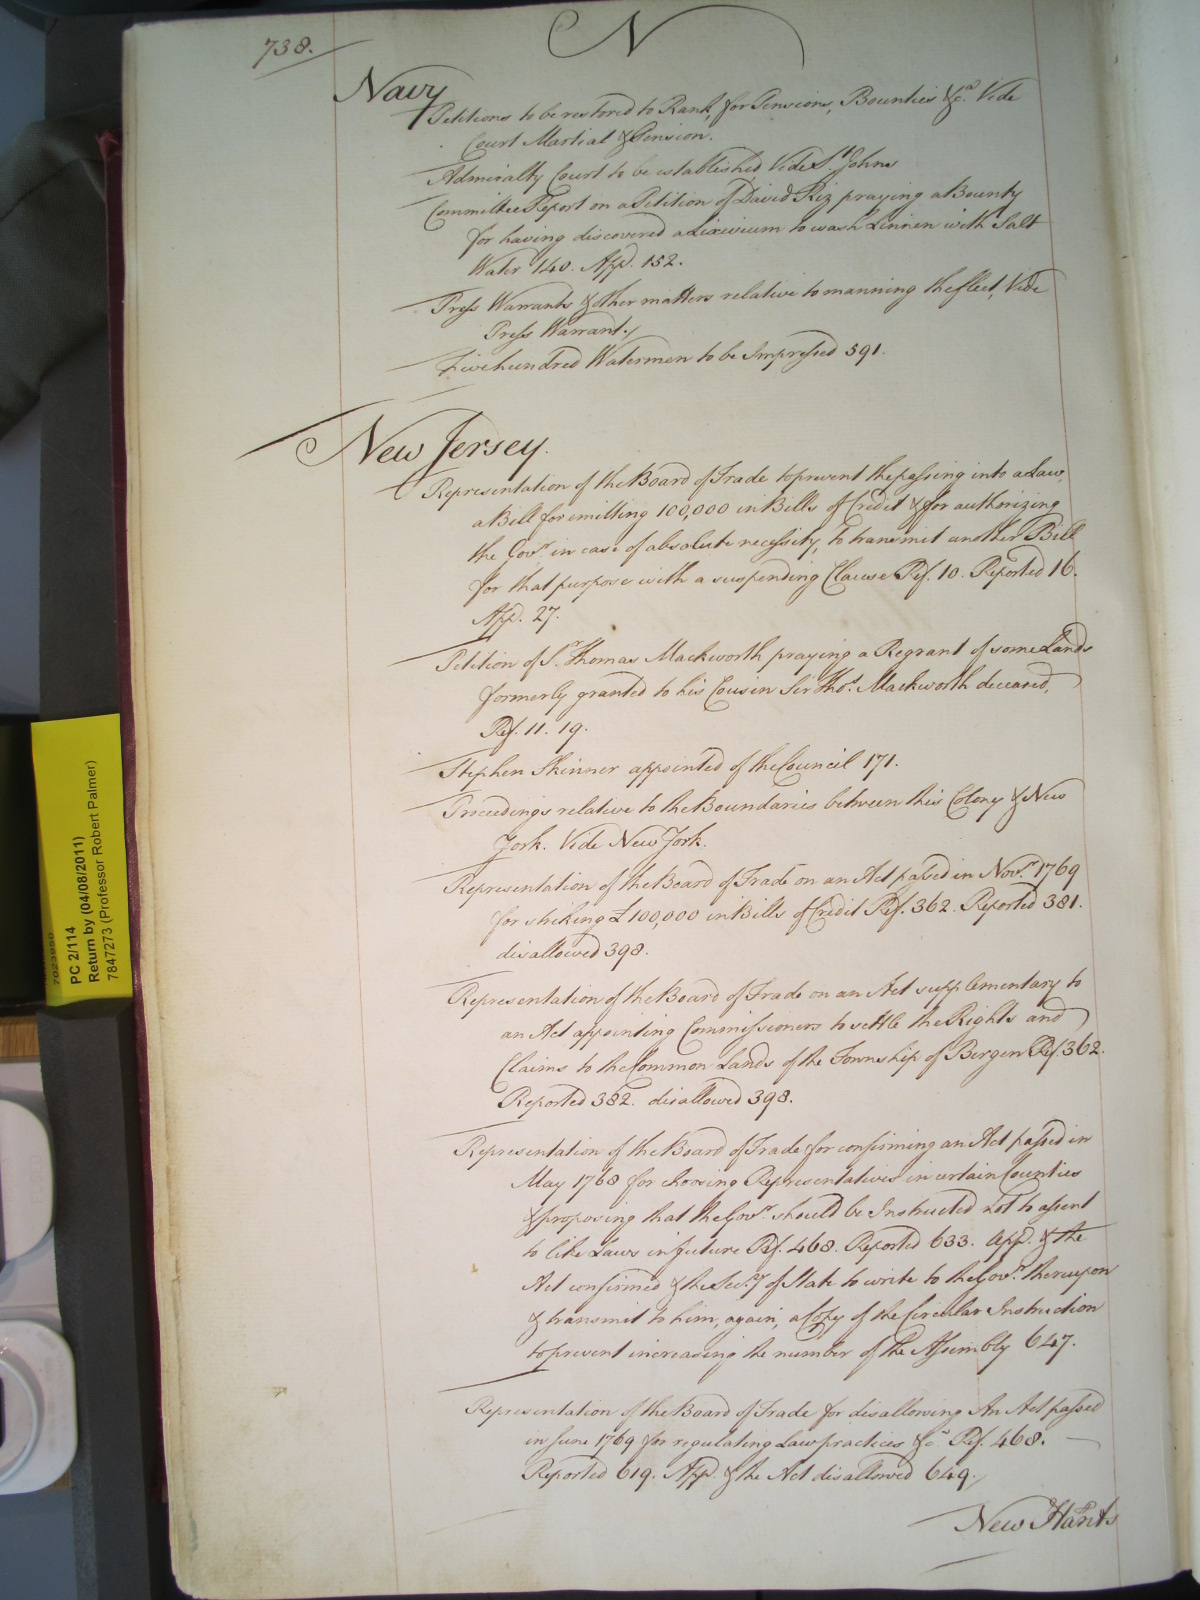 738.
N
Navy
Petitions to be restored to Rank, for Pensions, Bounties &ca. Vide
Court Martial & Pension.
Admiralty Court to be established Vide St. Johns
Committee Report on a Petition of David Riz praying a Bounty
for having discovered a Lixivium to wash Linnen with Salt
Water 140. App. 152.
Press Warrants & other matters relative to manning the fleet, Vide
Press Warrant,
Five hundred Watermen to be Impressed 591.
New Jersey.
Representation of the Board of Trade to prevent the passing into a Law,
a Bill for emitting 100,000 in Bills of Credit & for authorizing
the Govr. in case of absolute necessity, to transmit another Bill
for that purpose with a suspending Clause Ref. 10. Reported 16.
App. 27.
Petition of Sr. Thomas Mackworth praying a Regrant of some Lands
formerly granted to his Cousin Sir Thos. Mackworth deceased,
Ref. 11. 19.
Stephen Skinner appointed of the Council 171.
Proceedings relative to the Boundaries between this Colony & New
York. Vide New York.
Representation of the Board of Trade on an Act passed in Novr. 1769
for striking £100,000 in Bills of Credit Ref. 362. Reported 381.
disallowed 398.
Representation of the Board of Trade on an Act supplementary to
an Act appointing Commissioners to settle the Rights and
Claims to the Common Lands of the Township of Bergen Ref. 362.
Reported 382. disallowed 398.
Representation of the Board of Trade for confirming an Act passed in
May 1768 for choosing Representatives in certain Counties
& proposing that the Govr. should be Instructed not to assent
to like Laws in future Ref. 468. Reported 633. App. & the
Act confirmed & the Secry. of State to write to the Govr. thereupon
& transmit to him, again, a Copy of the Circular Instruction
to prevent increasing the number of the Assembly 647.
Representation of the Board of Trade for disallowing An Act passed
in June 1769 for regulating Law practices &ca. Ref. 468.
Reported 619. App. & the Act disallowed 649.
New Hants
7023950
PC 2/114
Return by (04/08/2011)
7847273 (Professor Robert Palmer)